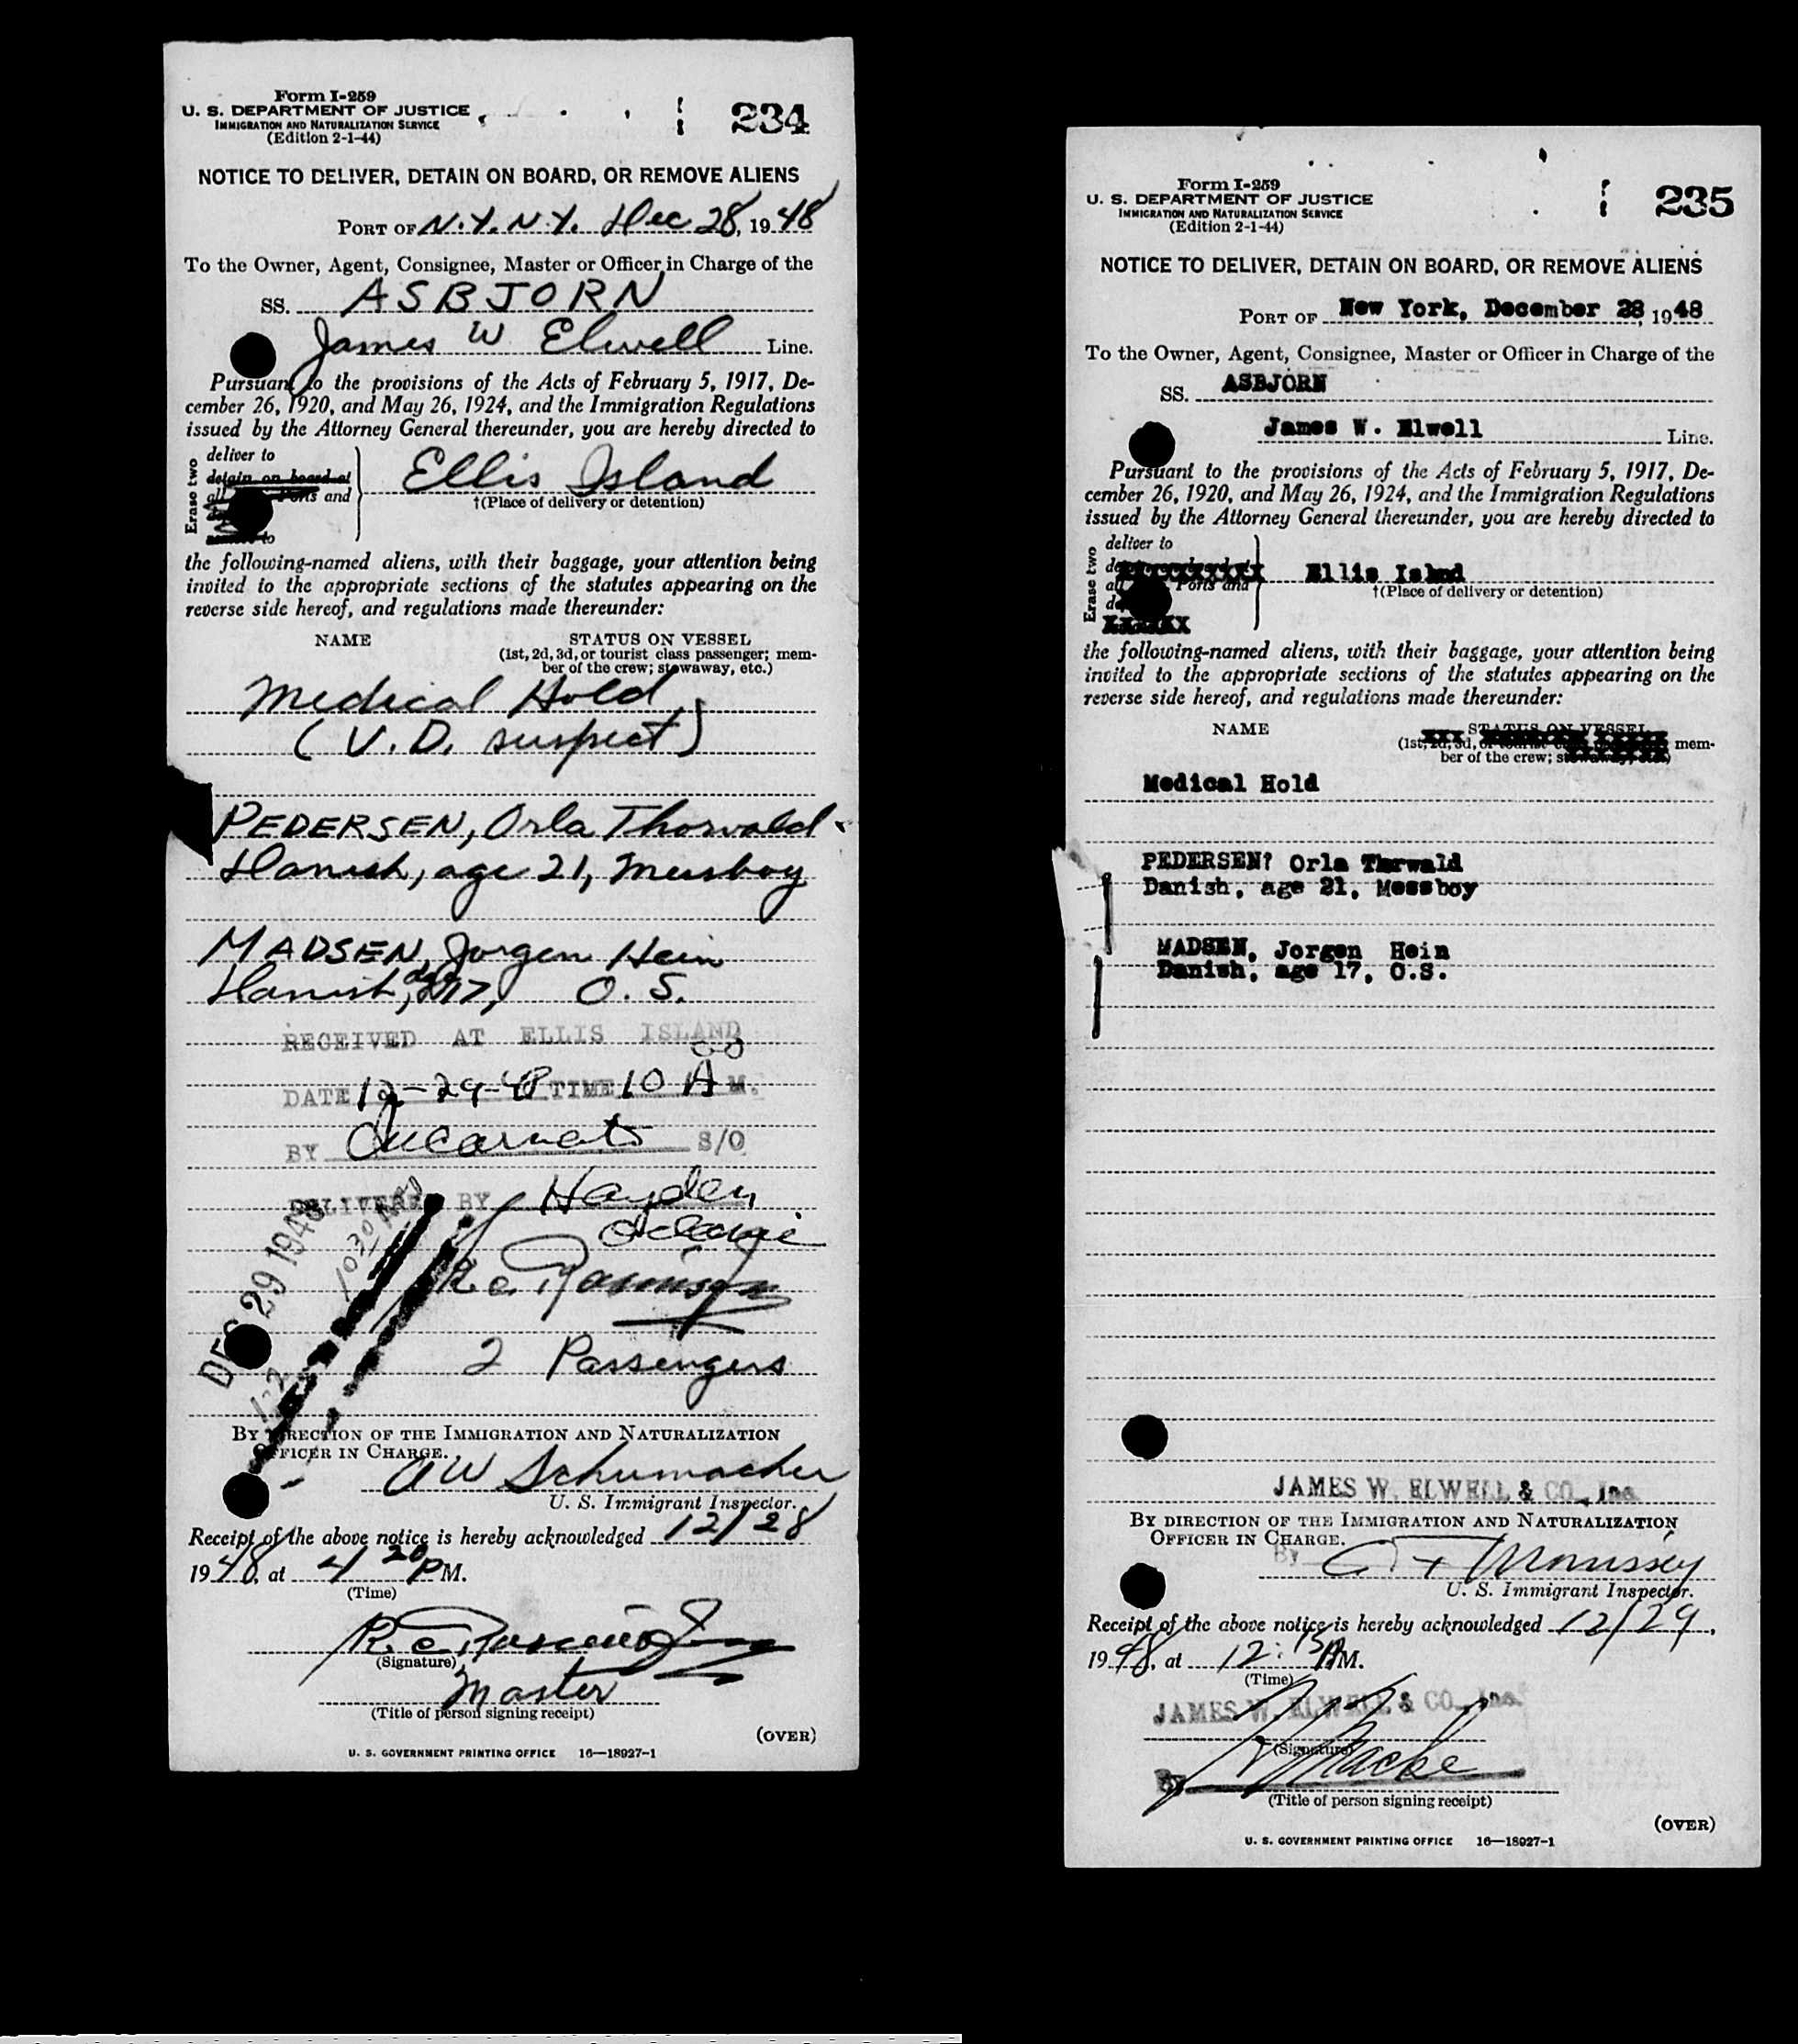 Form I-259
U. S. DEPARTMENT OF JUSTICE
IMMIGRATION AND NATURALIZATION SERVICE
(Edition 2-1-44)
234
NOTICE TO DELIVER, DETAIN ON BOARD, OR REMOVE ALIENS
PORT OF N.Y. N.Y. Dec 28, 1948
To the Owner, Agent, Consignee, Master or Officer in Charge of the
SS. ASBJORN
James W Elwell Line.
Pursuant to the provisions of the Acts of February 5, 1917, De-
cember 26, 1920, and May 26, 1924, and the Immigration Regulations
issued by the Attorney General thereunder, you are hereby directed to
Erase two
deliver to
detain on board at
all Ports and
to
Ellis Island
†(Place of delivery or detention)
the following-named aliens, with their baggage, your attention being
invited to the appropriate sections of the statutes appearing on the
reverse side hereof, and regulations made thereunder:
NAME STATUS ON VESSEL
(1st, 2d, 3d, or tourist class passenger; mem-
ber of the crew; stowaway, etc.)
Medical Hold
(V.D. suspect)
PEDERSEN, Orla Thorvald
Danish, age 21, Messboy
MADSEN, Jorgen Hein
Danish, age 17, O. S.
RECEIVED AT ELLIS ISLAND
DATE 12-29-48 TIME 10 00 A M.
BY S/O
DELIVERED BY Hayden
DEC 29 1948
1030 AM
2 Passengers
BY DIRECTION OF THE IMMIGRATION AND NATURALIZATION
OFFICER IN CHARGE.
A W Schumacher
U. S. Immigrant Inspector.
Receipt of the above notice is hereby acknowledged 12/28
1948, at 4 20 P M.
(Time)
(Signature)
Master
(Title of person signing receipt)
(OVER)
U. S. GOVERNMENT PRINTING OFFICE 16—18927-1
Form I-259
U. S. DEPARTMENT OF JUSTICE
IMMIGRATION AND NATURALIZATION SERVICE
(Edition 2-1-44)
235
NOTICE TO DELIVER, DETAIN ON BOARD, OR REMOVE ALIENS
PORT OF New York, December 28, 1948
To the Owner, Agent, Consignee, Master or Officer in Charge of the
SS. ASBJORN
James W. Elwell Line.
Pursuant to the provisions of the Acts of February 5, 1917, De-
cember 26, 1920, and May 26, 1924, and the Immigration Regulations
issued by the Attorney General thereunder, you are hereby directed to
Erase two
deliver to
all Ports and
Ellis Islnd
†(Place of delivery or detention)
the following-named aliens, with their baggage, your attention being
invited to the appropriate sections of the statutes appearing on the
reverse side hereof, and regulations made thereunder:
NAME STATUS ON VESSEL
(1st, 2d, 3d, or tourist class mem-
ber of the crew; stowaway, etc.)
Medical Hold
PEDERSEN? Orla Thrwald
Danish, age 21, Messboy
MADSEN, Jorgen Hein
Danish, age 17, O.S.
JAMES W. ELWELL & CO., Inc.
BY DIRECTION OF THE IMMIGRATION AND NATURALIZATION
OFFICER IN CHARGE.
By Morrissey
U. S. Immigrant Inspector.
Receipt of the above notice is hereby acknowledged 12/29,
1948, at 12:15 P M.
(Time)
JAMES W. ELWELL & CO., Inc.
(Signature)
By
(Title of person signing receipt)
(OVER)
U. S. GOVERNMENT PRINTING OFFICE 16—18927-1